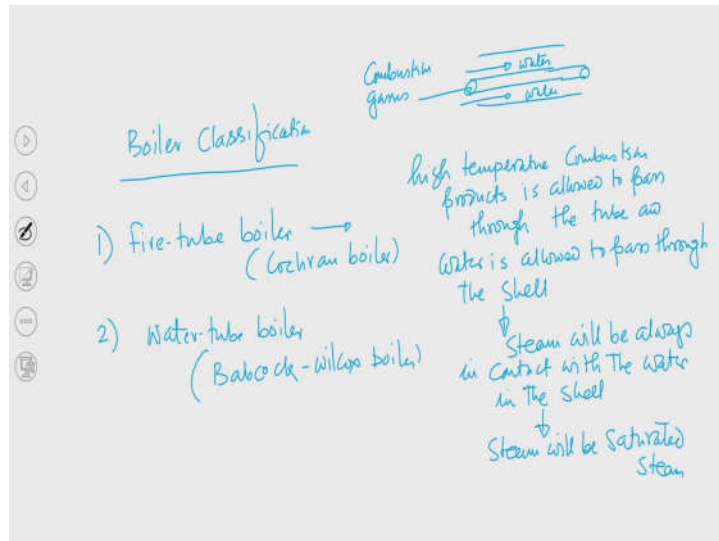 Combustion water
gasses water
Boiler Classification
1) Fire-tube boiler →
(Cochran boiler)
2) Water-tube boiler
(Babcock-wilcox boiler)
high temperature Combustion
products is allowed to pass
through the tube and
water is allowed to pass through
the Shell
↓
Steam will be always
in contact with the water
in the shell
↓
Steam will be Saturated
Steam